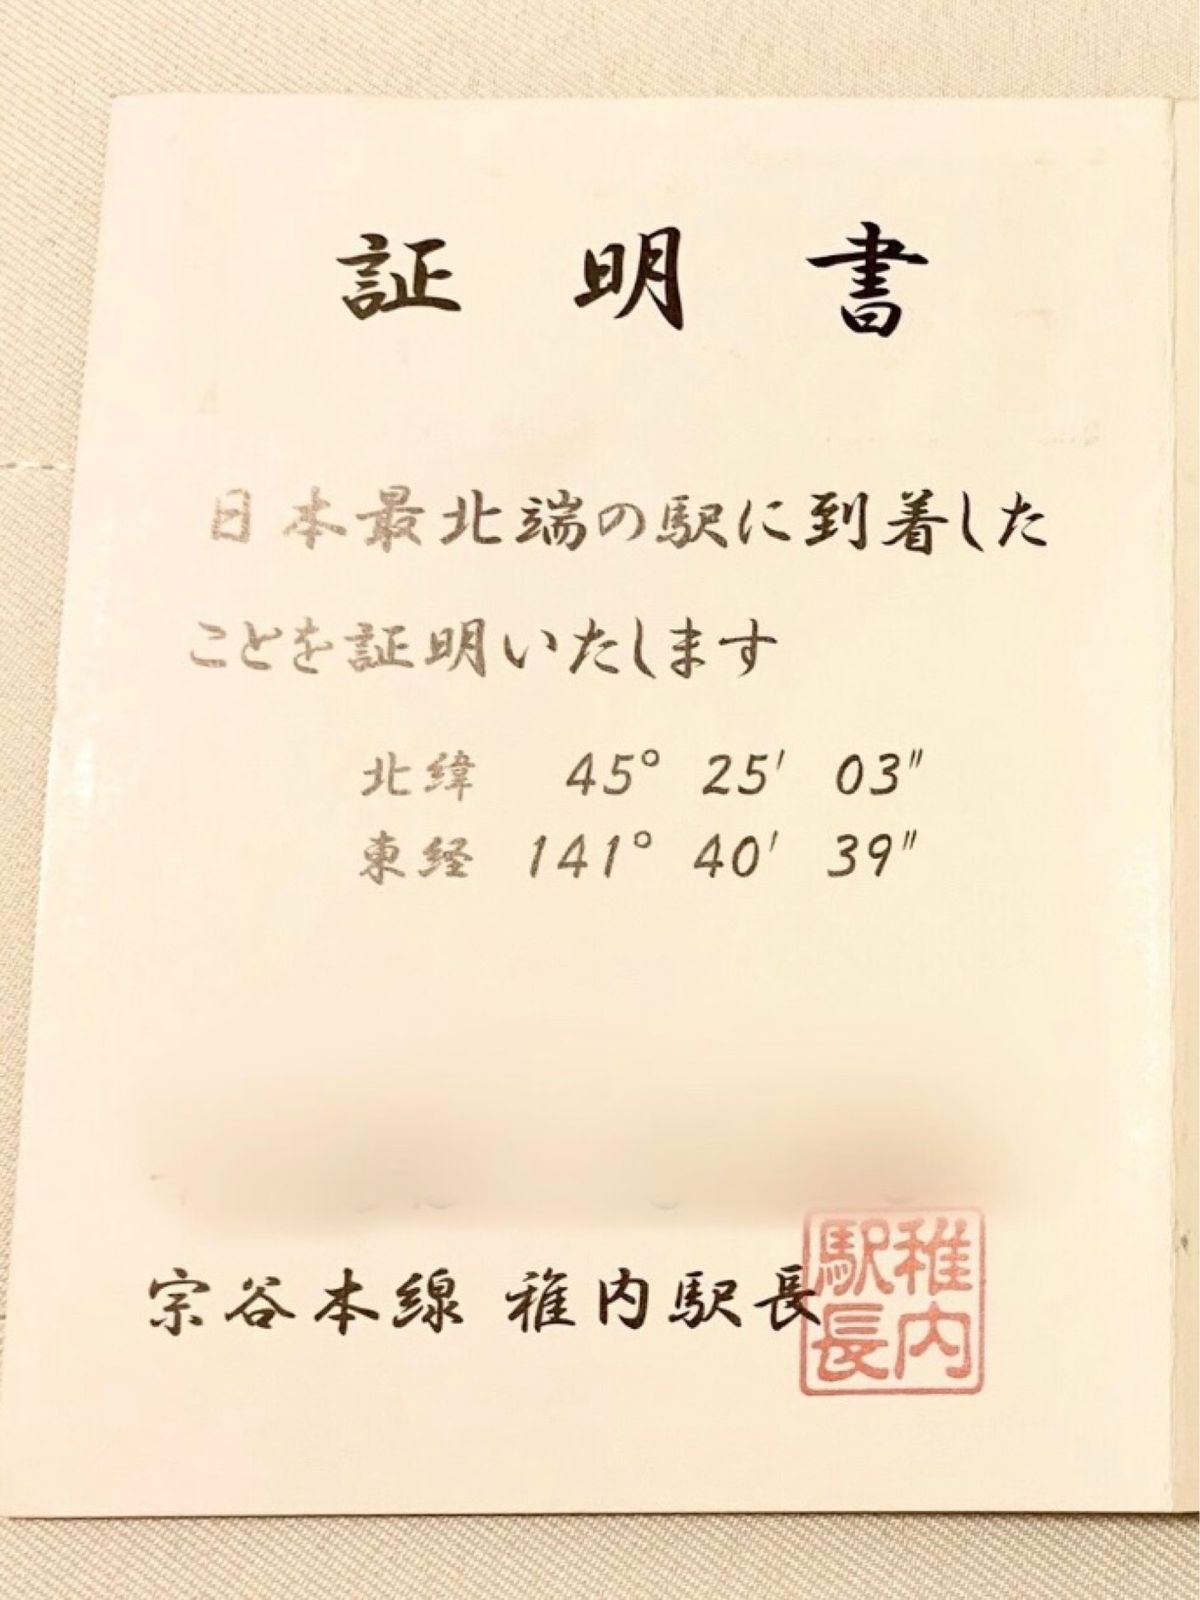 証明書
日本最北端の駅に到着した
ことを証明いたします
北緯 45° 25′ 03″
東経 141° 40′ 39″
宗谷本線 稚内駅長
稚内
駅長